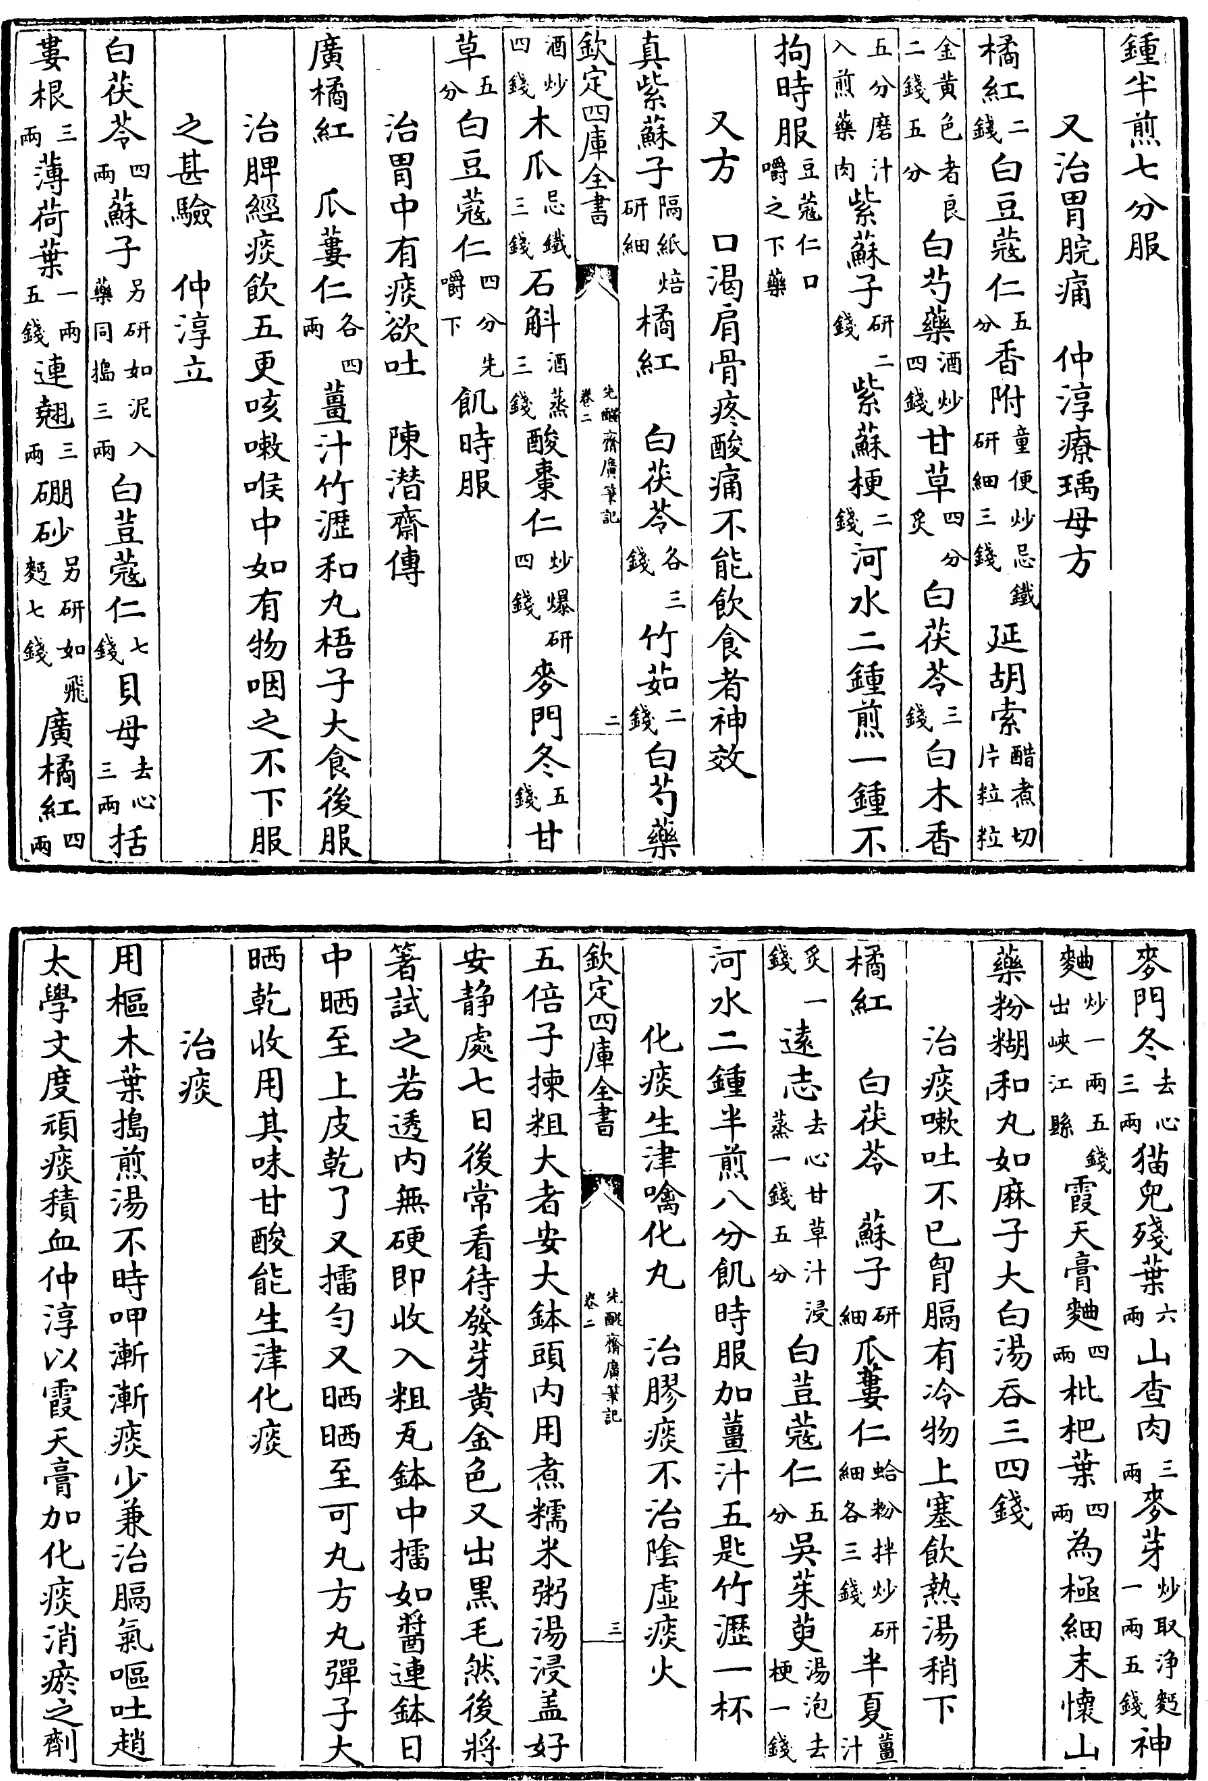 鍾半煎七分服
又治胃脘痛　仲淳療瑀母方
橘紅二錢白豆蔻仁五分香附童便炒忌鐵研細三錢延胡索醋煮切片粒粒
金黄色者良二錢五分白芍藥酒炒四錢甘草四分炙白茯苓三錢白木香
五分磨汁入煎藥肉紫蘇子研二錢紫蘇梗二錢河水二鍾煎一鍾不
拘時服豆蔻仁口嚼之下藥
又方　口渴肩骨疼酸痛不能飲食者神效
真紫蘇子隔紙焙研細橘紅　白茯苓各三錢竹茹二錢白芍藥
欽定四庫全書　先醒齋廣筆記卷二　二
酒炒四錢木瓜忌鐵三錢石斛酒蒸三錢酸棗仁炒爆研四錢麥門冬五錢甘
草五分白豆蔻仁四分先嚼下飢時服
治胃中有痰欲吐　陳潛齋傳
廣橘紅　瓜蔞仁各四兩薑汁竹瀝和丸梧子大食後服
治脾經痰飲五更咳嗽喉中如有物咽之不下服
之甚驗　仲淳立
白茯苓四兩蘇子另研如泥入藥同搗三兩白荳蔻仁七錢貝母去心三兩括
蔞根三兩薄荷葉一兩五錢連翹三兩硼砂另研如飛麪七錢廣橘紅四兩
麥門冬去心三兩猫兒殘葉六兩山查肉三兩麥芽炒取淨麪一兩五錢神
麯炒一兩五錢出峽江縣霞天膏麯四兩枇杷葉四兩為極細末懷山
藥粉糊和丸如麻子大白湯吞三四錢
治痰嗽吐不已胷膈有冷物上塞飲熱湯稍下
橘紅　白茯苓　蘇子研細瓜蔞仁蛤粉拌炒研細各三錢半夏薑汁
炙一錢遠志去心甘草汁浸蒸一錢五分白荳蔻仁五分吳茱萸湯泡去梗一錢
河水二鍾半煎八分飢時服加薑汁五匙竹瀝一杯
化痰生津噙化丸　治膠痰不治陰虛痰火
欽定四庫全書　先醒齋廣筆記卷二　三
五倍子揀粗大者安大鉢頭内用煮糯米粥湯浸盖好
安静處七日後常看待發芽黄金色又出黒毛然後將
箸試之若透内無硬即收入粗瓦鉢中擂如醬連鉢日
中晒至上皮乾了又擂勻又晒晒至可丸方丸彈子大
晒乾收用其味甘酸能生津化痰
治痰
用樞木葉搗煎湯不時呷漸漸痰少兼治膈氣嘔吐趙
太學文度頑痰積血仲淳以霞天膏加化痰消瘀之劑